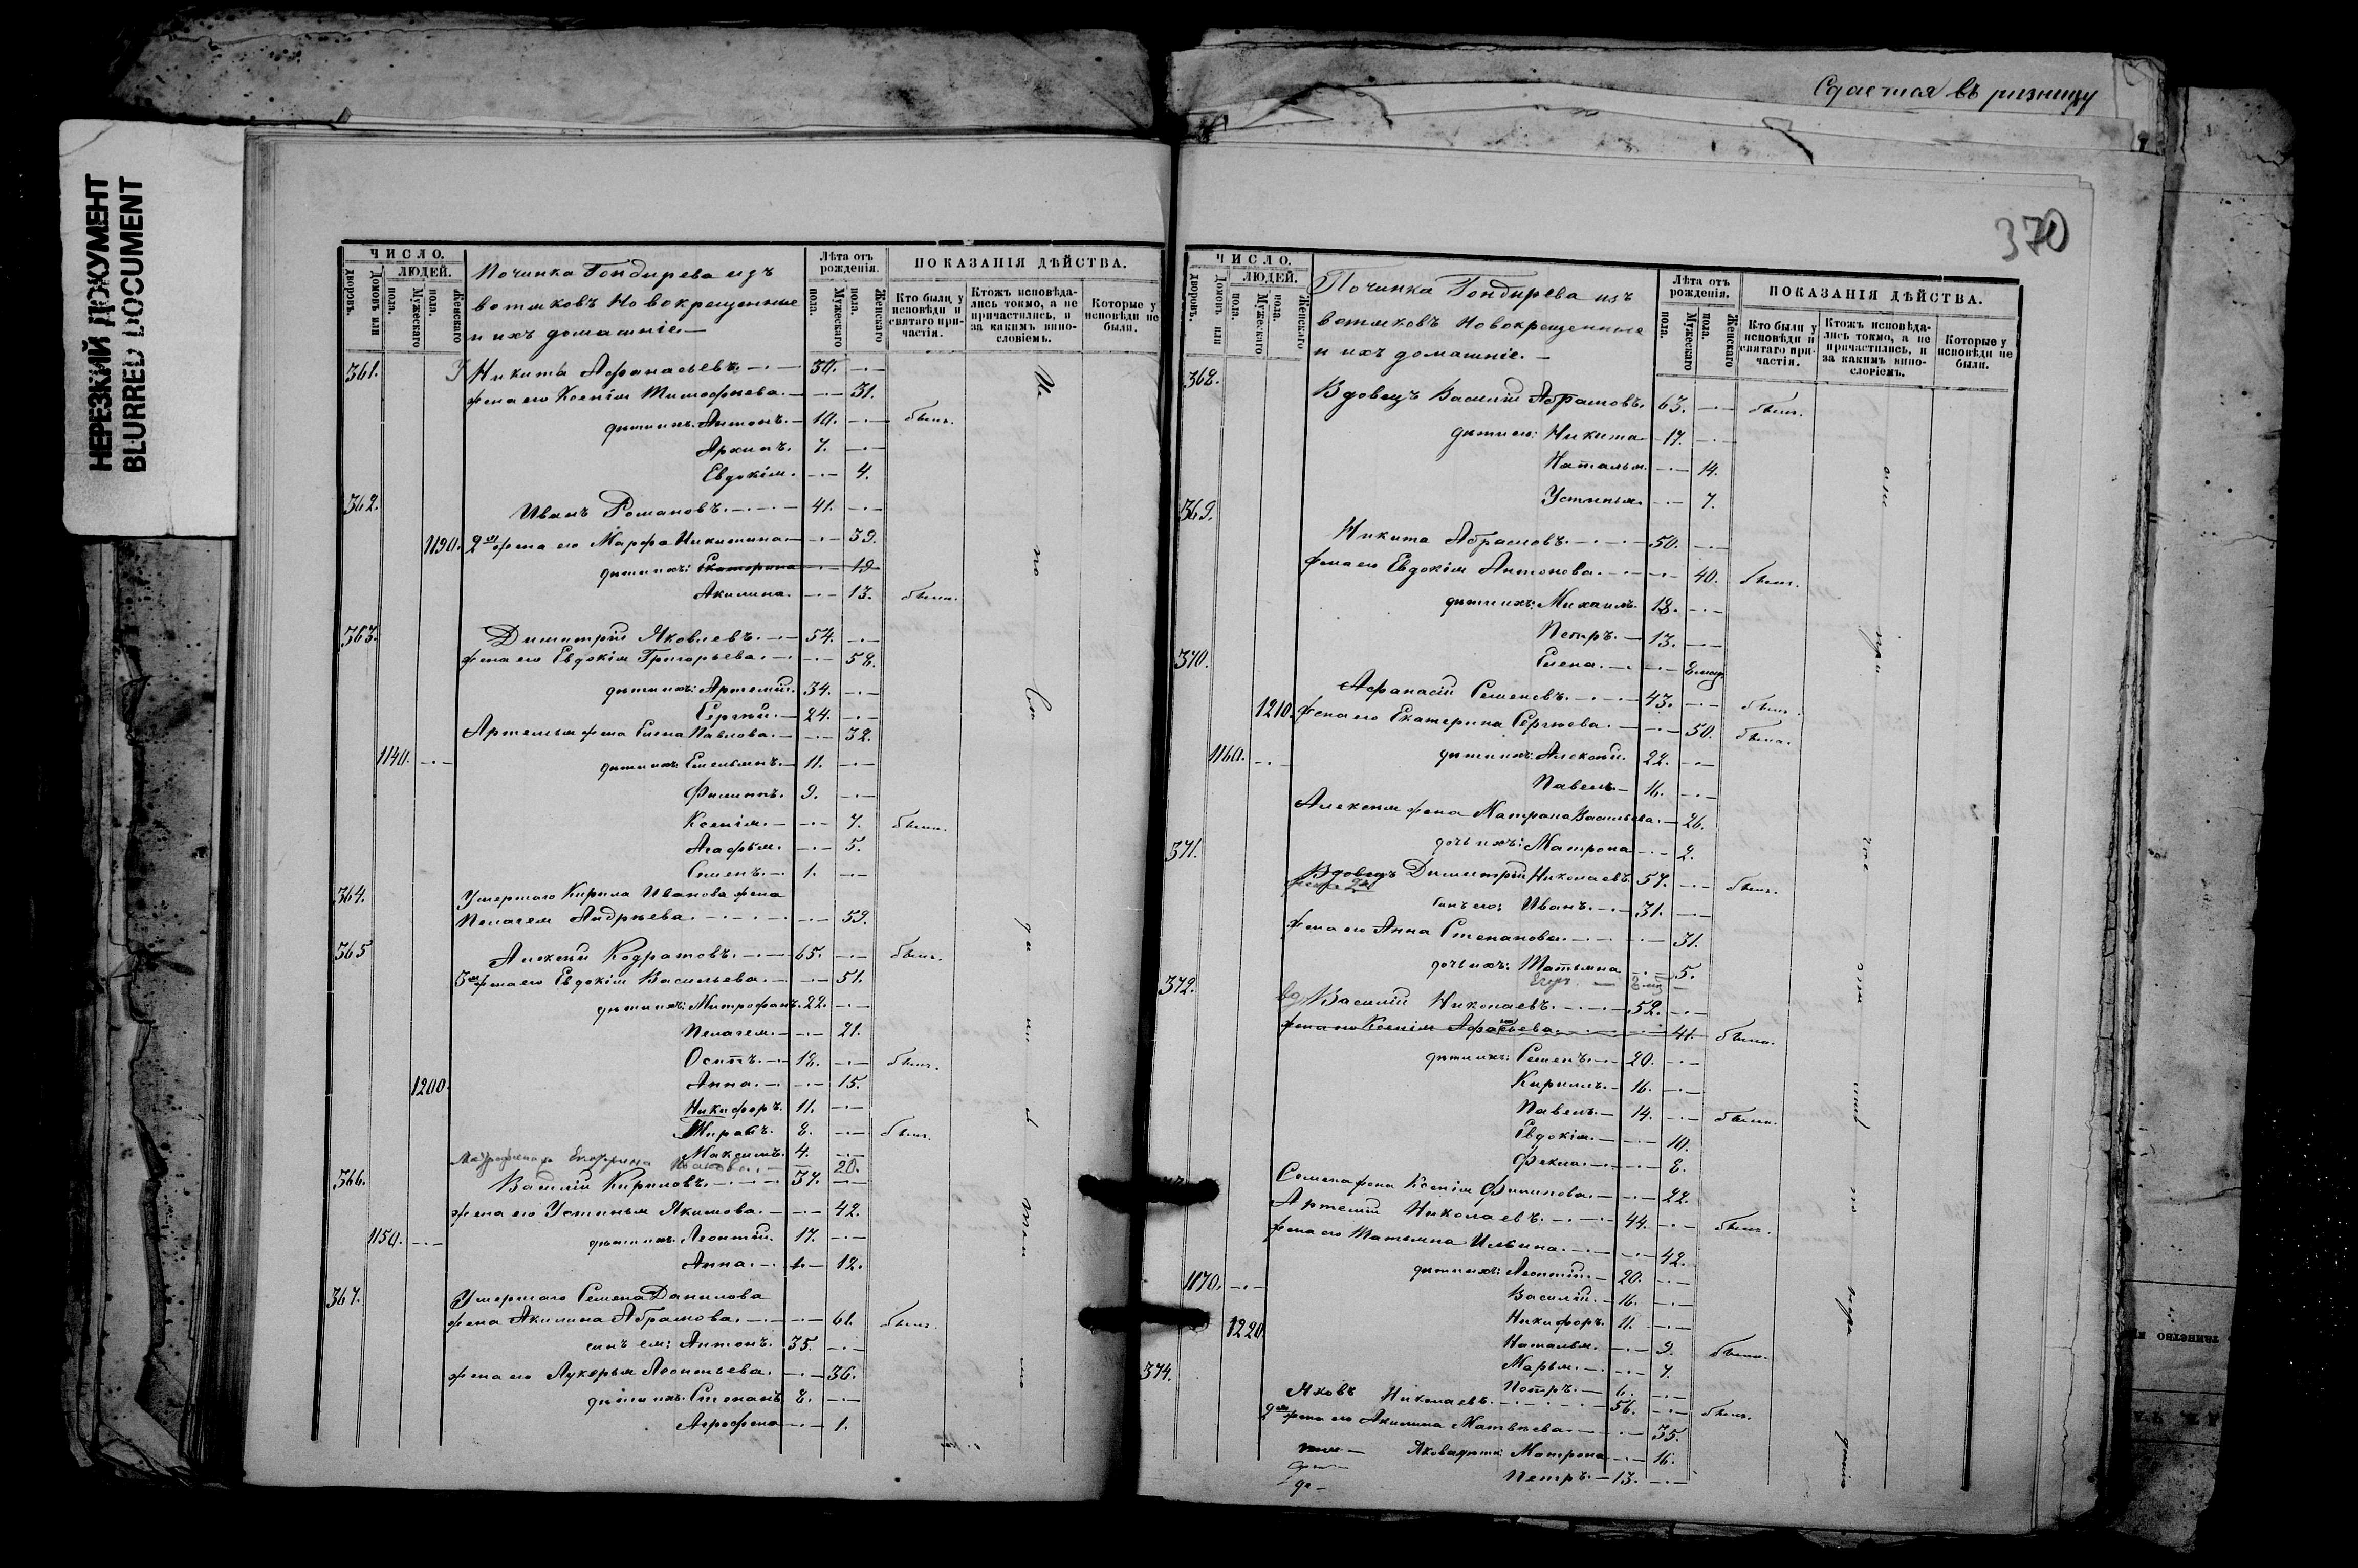 НЕРЕЗКИЙ ДОКУМЕНТ
BLURRED DOCUMENT
Сдается въ ризницу
370
ЧИСЛО.
ЛЮДЕЙ.
Дворовъ.
Домовъ или
Мужескаго пола.
Женскаго пола.
Починка Гондырева изъ
вотяковъ Новокрещенные
и ихъ домашніе. —
Лѣта отъ рожденія.
Мужескаго пола.
Женскаго пола.
ПОКАЗАНІЯ ДѢЙСТВА.
Кто были у исповѣди и святаго причастія.
Ктожъ исповѣдались токмо, а не причастились, и за какимъ винословіемъ.
Которые у исповѣди не были.
361. Никита Афанасьевъ. 34.
жена его Ксенія Тимофеева. 31.
дѣти ихъ: Антонъ. 10. были.
Архипъ. 7.
Евдокія. 4.
362. Иванъ Романовъ. 41.
1190. 2я жена его Марфа Никитина. 39.
дѣти ихъ: Екатерина 19
Акилина. 13. были.
363. Димитрій Яковлевъ. 54.
жена его Евдокія Григорьева. 58.
дѣти ихъ: Артемій. 34.
Сергѣй. 24.
Артемья жена Елена Павлова. 32.
1140. дѣти ихъ: Емельянъ. 11.
Филиппъ. 9.
Ксенія. 7. были.
Агафья. 5.
Семенъ. 1.
364. Умершаго Кирила Иванова жена
Пелагея Андреева. 59.
365 Алексѣй Кодратовъ. 65. былъ.
3я жена его Евдокія Васильева. 51.
дѣти ихъ: Митрофанъ. 22.
Пелагея. 21.
Осипъ. 18. были.
1200. Анна. 15.
Никифоръ. 11.
8. были.
Максимъ. 4.
Екатерина 20.
366. Василій Кириловъ. 37.
жена его Устинья Якимова. 42.
1150. дѣти ихъ: Леонтій. 17.
Анна. 12.
367. Умершаго Семена Данилова
жена Акилина Абрамова. 61. были.
сынъ ея: Антонъ. 35.
жена его Лукерья Леонтьева. 36.
дѣти ихъ: Степанъ 8.
Агрофена 1.
ЧИСЛО.
ЛЮДЕЙ.
Дворовъ.
Домовъ или
Мужескаго пола.
Женскаго пола.
Починка Гондырева изъ
вотяковъ Новокрещенные
и ихъ домашніе. —
Лѣта отъ рожденія.
Мужескаго пола.
Женскаго пола.
ПОКАЗАНІЯ ДѢЙСТВА.
Кто были у исповѣди и святаго причастія.
Ктожъ исповѣдались токмо, а не причастились, и за какимъ винословіемъ.
Которые у исповѣди не были.
368. Вдовецъ Василій Абрамовъ. 63. были.
дѣти его: Никита 17.
Наталья. 14.
Устинья. 7.
369. Никита Абрамовъ. 50.
жена его Евдокія Антонова. 40. были.
дѣти ихъ: Михаилъ. 18.
Петръ. 13.
Елена. 8 мѣс
370. Афанасій Семеновъ. 43. были.
1210. жена его Екатерина Сергѣева. 50. были.
1160. дѣти ихъ: Алексѣй. 22.
Павелъ 16.
Алексѣя жена Матрона Васильева. 26.
дочь ихъ: Матрона 2.
371. Вдовецъ Димитрій Николаевъ. 57. былъ.
сынъ его: Иванъ. 31.
жена его Анна Степанова. 31.
дочь ихъ: Татьяна 5.
Егоръ
372. вд. Василій Николаевъ. 52.
жена его Ксенія Афанасьева. 41. были.
дѣти ихъ: Семенъ. 20.
Кириллъ. 16.
Павелъ. 14. были.
Евдокія. 10.
Фекла. 8.
Семена жена Ксенія Филипова. 22.
Артемій Николаевъ. 44. были.
жена его Татьяна Ильина. 42.
1170. дѣти ихъ: Леонтій. 20.
Василій. 16.
1220 Никифоръ. 11.
Наталья. 9. были.
Марья. 7.
Петръ. 6.
374. Яковъ Николаевъ. 56. былъ.
2я жена его Акилина Матвѣева. 35.
Якова дѣти: Матрона 16.
Петръ. 13.